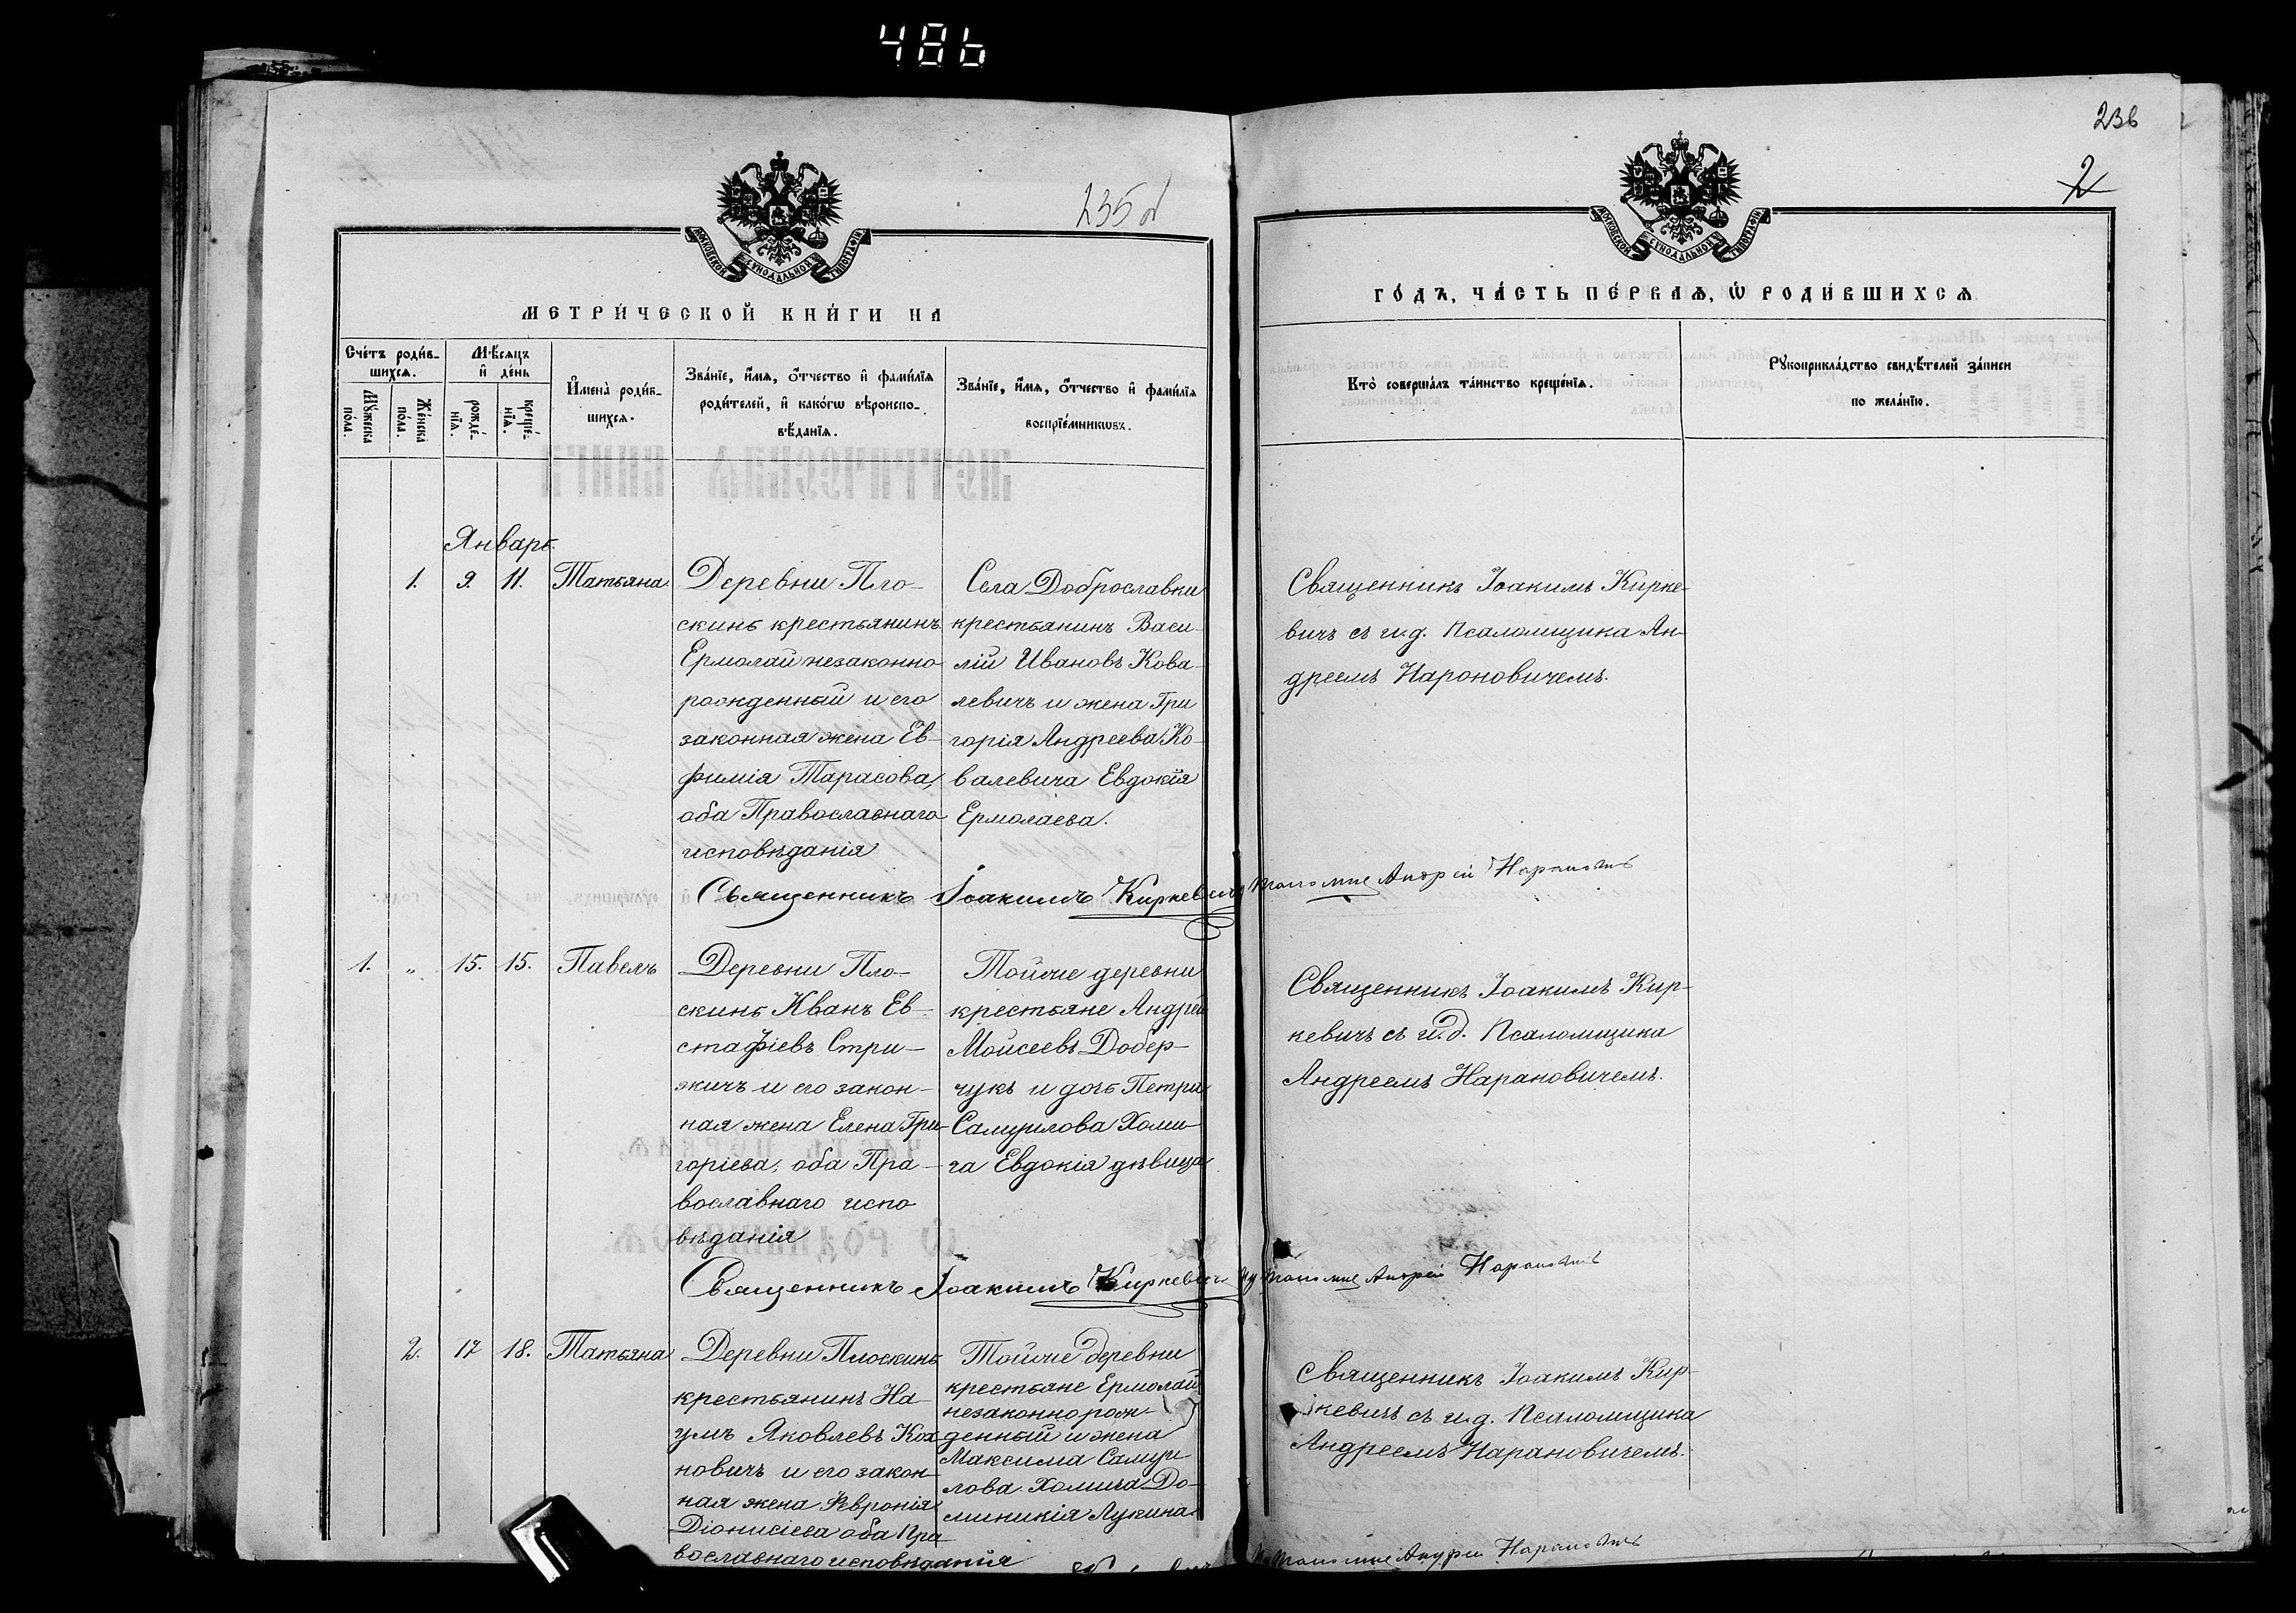 486
236
2
235 об
МОСКОВСКОЙ СѴНОДАЛЬНОЙ ТИПОГРАФІИ
МОСКОВСКОЙ СѴНОДАЛЬНОЙ ТИПОГРАФІИ
МЕТРИ́ЧЕСКОЙ КНИ́ГИ НА
ГО́ДЪ, ЧА́СТЬ ПЕ́РВАѦ, Ѡ҆ РОДИ́ВШИХСѦ
Сче́тъ роди́в-
шихсѧ.
Мꙋ́жеска
по́ла.
Же́нска
по́ла.
Мѣ́сѧцъ
и҆ де́нь
рожде́-
нїѧ.
креще́-
нїѧ.
И҆мена̀ роди́в-
шихсѧ.
Зва́нїе, и҆́мѧ, ѻ҆́тчество и҆ фами́лїѧ
роди́телей, и҆ како́гѡ вѣроиспо-
вѣ́данїѧ.
Зва́нїе, и҆́мѧ, ѻ҆́тчество и҆ фами́лїѧ
воспрїе́мникѡвъ.
Кто̀ соверша́лъ та́инство креще́нїѧ.
Рꙋкоприкла́дство свидѣ́телей за́писи
по жела́нїю.
Январь.
1. 9. 11. Татьяна.
Деревни Пло-
скинь крестьянинъ
Ермолай незаконно
рожденный и его
законная жена Ев-
фимія Тарасова,
оба Православнаго
исповѣданія
Села Доброславки
крестьянинъ Васи-
лій Ивановъ Кова-
левичъ и жена Гри
горія Андреева Ко-
валевича Евдокія
Ермолаева.
Священникъ Іоакимъ Кирке-
вичъ съ и.д. Псаломщика Ан-
дреемъ Нароновичемъ.
Священникъ Іоакимъ Киркевичъ Андрей
1. „ 15. 15. Павелъ
Деревни Пло-
скинь Иванъ Ев-
стафіевъ Стри-
жичъ и его закон-
ная жена Елена Гри-
горіева, оба Пра-
вославнаго испо
вѣданія
Тойже деревни
крестьяне Андрей
Моисеевъ Добер-
чукъ и дочь Петра
Самуилова Хоми-
ча Евдокія дѣвица
Священникъ Іоакимъ Кир-
кевичъ съ и.д. Псаломщика
Андреемъ Нарановичемъ.
Священникъ Іоакимъ Киркевичъ Андрей
2. 17 18. Татьяна
Деревни Плоскинь
крестьянинъ На-
умъ Яковлевъ Коха
новичъ и его закон-
ная жена Февронія
Діонисіева оба Пра
вославнаго исповѣданія
Тойже деревни
крестьяне Ермолай
незаконно рож-
денный и жена
Максима Самуи
лова Хомича До-
миникія Лукина
Священникъ Іоакимъ Кир-
кевичъ съ и.д. Псаломщика
Андреемъ Нарановичемъ.